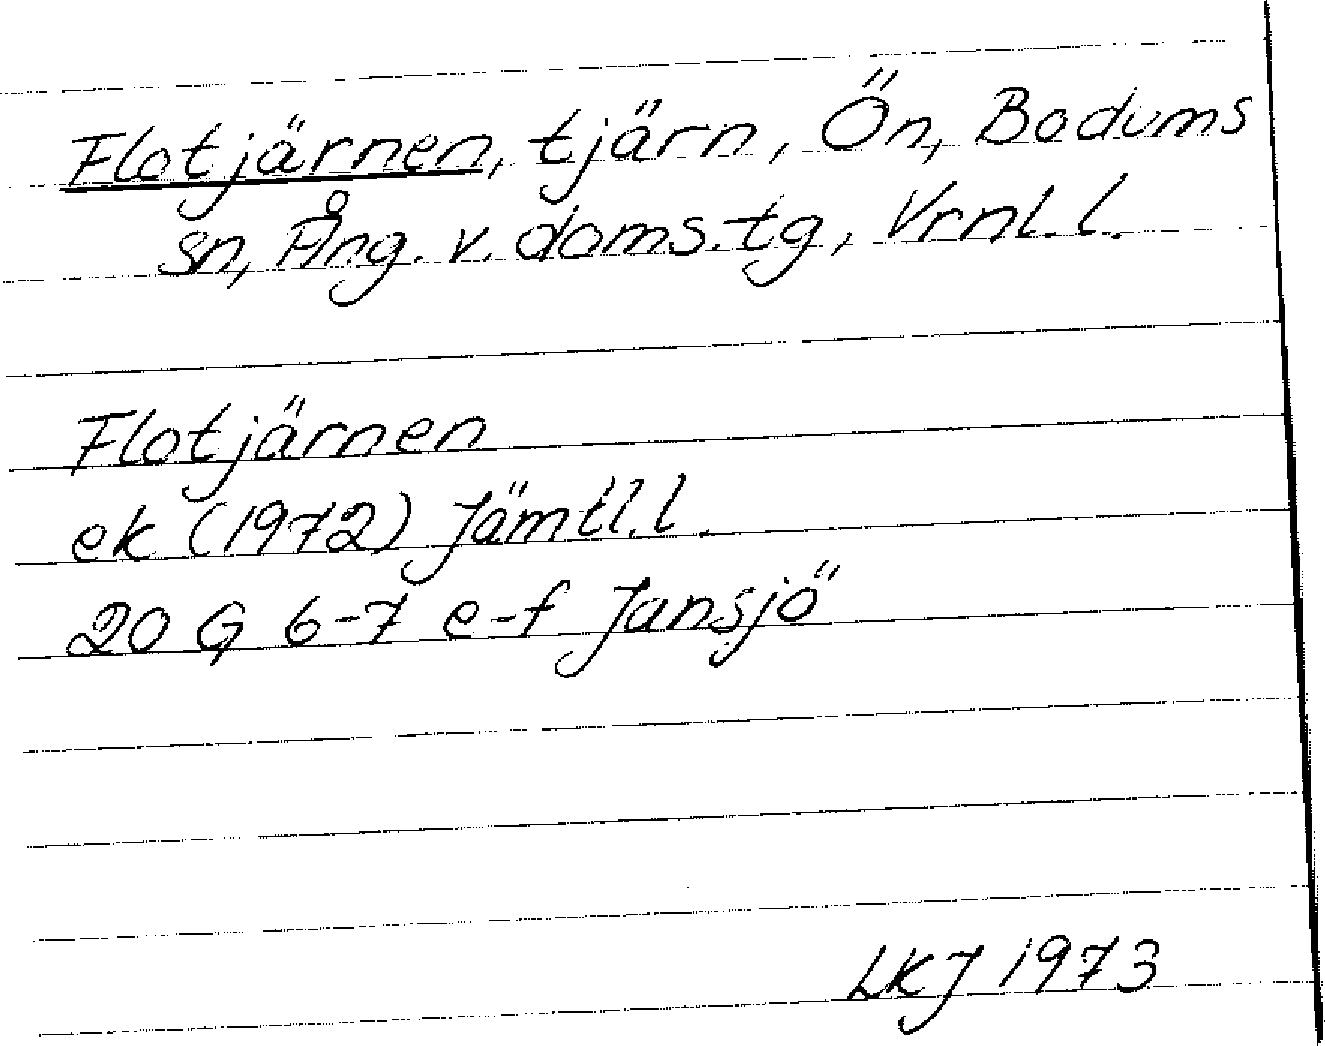 Flotjärnen, tjärn, Ön, Bodums
sn, Ång. v. doms.tg, Vrnl. l.
Flotjärnen
ek (1972) Jämtl. l.
20 G 6-7 e-f Jansjö
LKJ 1973